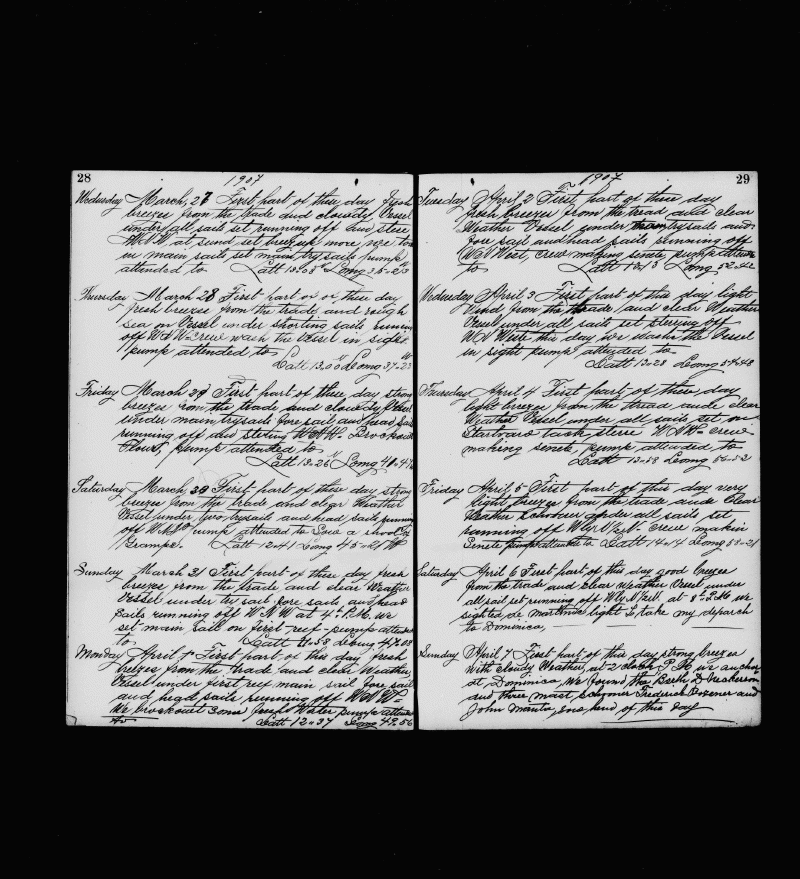 28
1907
Wednesday March, 27 First part of these day fresh
breezes from the trade and cloudy Vessel
under all sails set running off and stere
W.N.W at sund set breezes up more
in main sails set main trysails pump
attended to Latt 13-05 Long 35-23
Thursday March 28 First part of these day
fresh breezes from the trade and rough
sea on Vessel under shorting sails running
off W.N.W. Crew wash the Vessel in sight
pump attended to
Latt 13,00 N Long 37-23 W
Friday March 29 First part of these day strong
breezes from the trade and cloudy Vessel
under main trysail fore sail and head sails
running off and stering W.N.W. Brockout
Flour, pump attended to
Latt 13-26 N Long 40-47
Saturday March, 30 First part of these day strong
breeze from the trade and clear Weather
Vessel under two trysails and head sails running
off W.N.W pump attended to Saw a shool of
Grampe. Latt 12-41 Long 45-21 W
Sunday March 31 First part of these day fresh
breezes from the trade and clear Weather
Vessel under try sail fore sails and head
sails running off W.N.W at 4 P.M. we
set main sail on first reef - pump attended
to Latt 11-59 Long 47-09
Monday April 1st First part of this day fresh
breezes from the trade and clear Weather
Vessel under first reef main sail fore sail
and head sails running off W.N.W-
We brockout some fresh Water pump attended
to Latt 12-37 Long 49-56
29
1907
Tuesday April 2 First part of these day
fresh breezes from the tread and clear
Weather Vessel under sails and
fore sail and head sails running off
W.N West, crew making senete, pump attende
to Latt 13-13 Long 52-42
Wednesday April 3 First part of this day light
wind from the trade and clear Weather
Vessel under all sails set stering off
W N West this day we washe the Vessel
in sight pump attended to
Latt 13-28 Long 54-48
Thursday April 4 First part of these day
light breezes from the tread ande clear
Weather Vessel under all sails set on
Starboard tack stere W.N.W- crew
making senete, pump attended to
Latt 13-58 Long 56-52
Friday April 5 First part of this day very
light breeze from the trade ande Clear
Weather Schooner under all sails set
running off W crew makin
Senete pump attended to Latt 14-14 Long 58-21
Saturday April 6 First part of this day good breeze
from the trade and clear Weather Vessel under
all sail set running off W by N. at 8 P.M we
sighted de martinic light to take my deparch
to Dominica,
Sunday April 7 First part of this day strong breezes
With cloudy Weather, at 2 clock P.M we anchor
at Dominica, We found the Bark, D
and three mast Schooner Frederick Roesner and
John Manta, so end of this day